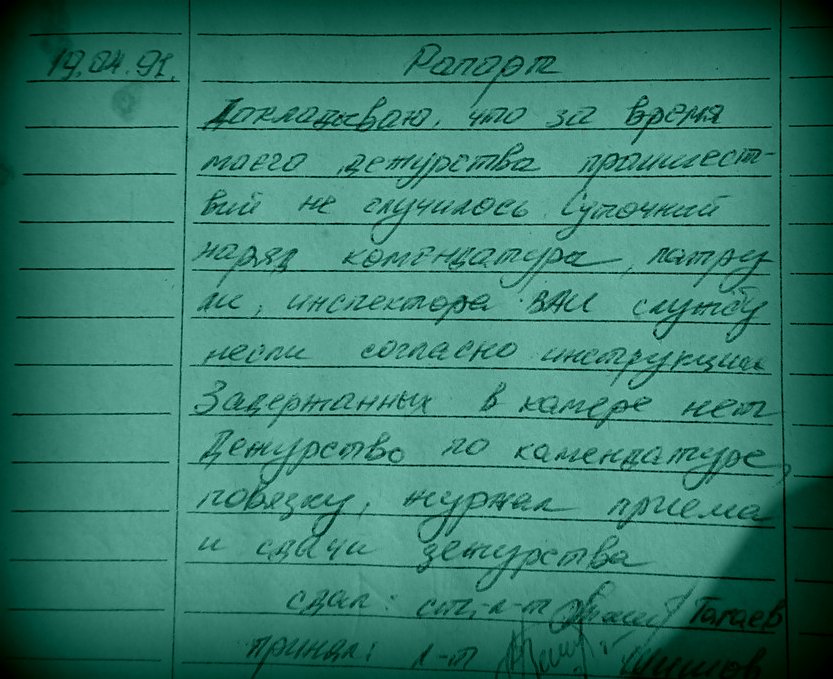 19.04.91. Рапорт
Докладываю, что за время
моего дежурства проишест-
вий не случилось Суточный
наряд комендатуры, патру
ли, инспектора ВАИ службу
несли согласно инструкции
Задержанных в камере нет
Дежурство по комендатуре,
повязку, журнал приема
и сдачи дежурства
сдал: ст. л-т Гагаев
принял: л-т Шишов